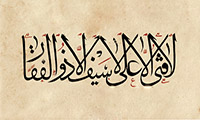 لا فتى إلا علي لا سيف إلا ذو الفقار